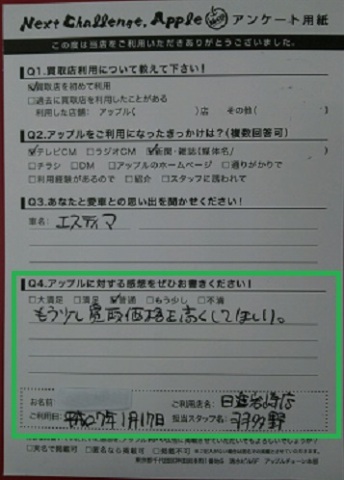 Next Challenge, Apple アンケート用紙
この度は当店をご利用いただきありがとうございました。
Q1.買取店利用について教えて下さい!
☑買取店を初めて利用
□過去に買取店を利用したことがある
利用した店舗: アップル( )店 その他( )
Q2.アップルをご利用になったきっかけは?(複数回答可)
☑テレビCM □ラジオCM ☑新聞・雑誌(媒体名/ )
□チラシ □DM □アップルのホームページ □通りがかりで
□利用経験があるので □紹介 □スタッフに誘われて
Q3.あなたと愛車との思い出を聞かせてください!
車名: エスティマ
Q4.アップルに対する感想をぜひお書きください!
□大満足 □満足 ☑普通 □もう少し □不満
もう少し買取価格を高くしてほしい。
お名前
ご利用店名: 日進岩崎店
ご利用日: 平成27年1月17日 担当スタッフ名: 羽多野
□実名で掲載可 □匿名なら掲載可 □掲載不可